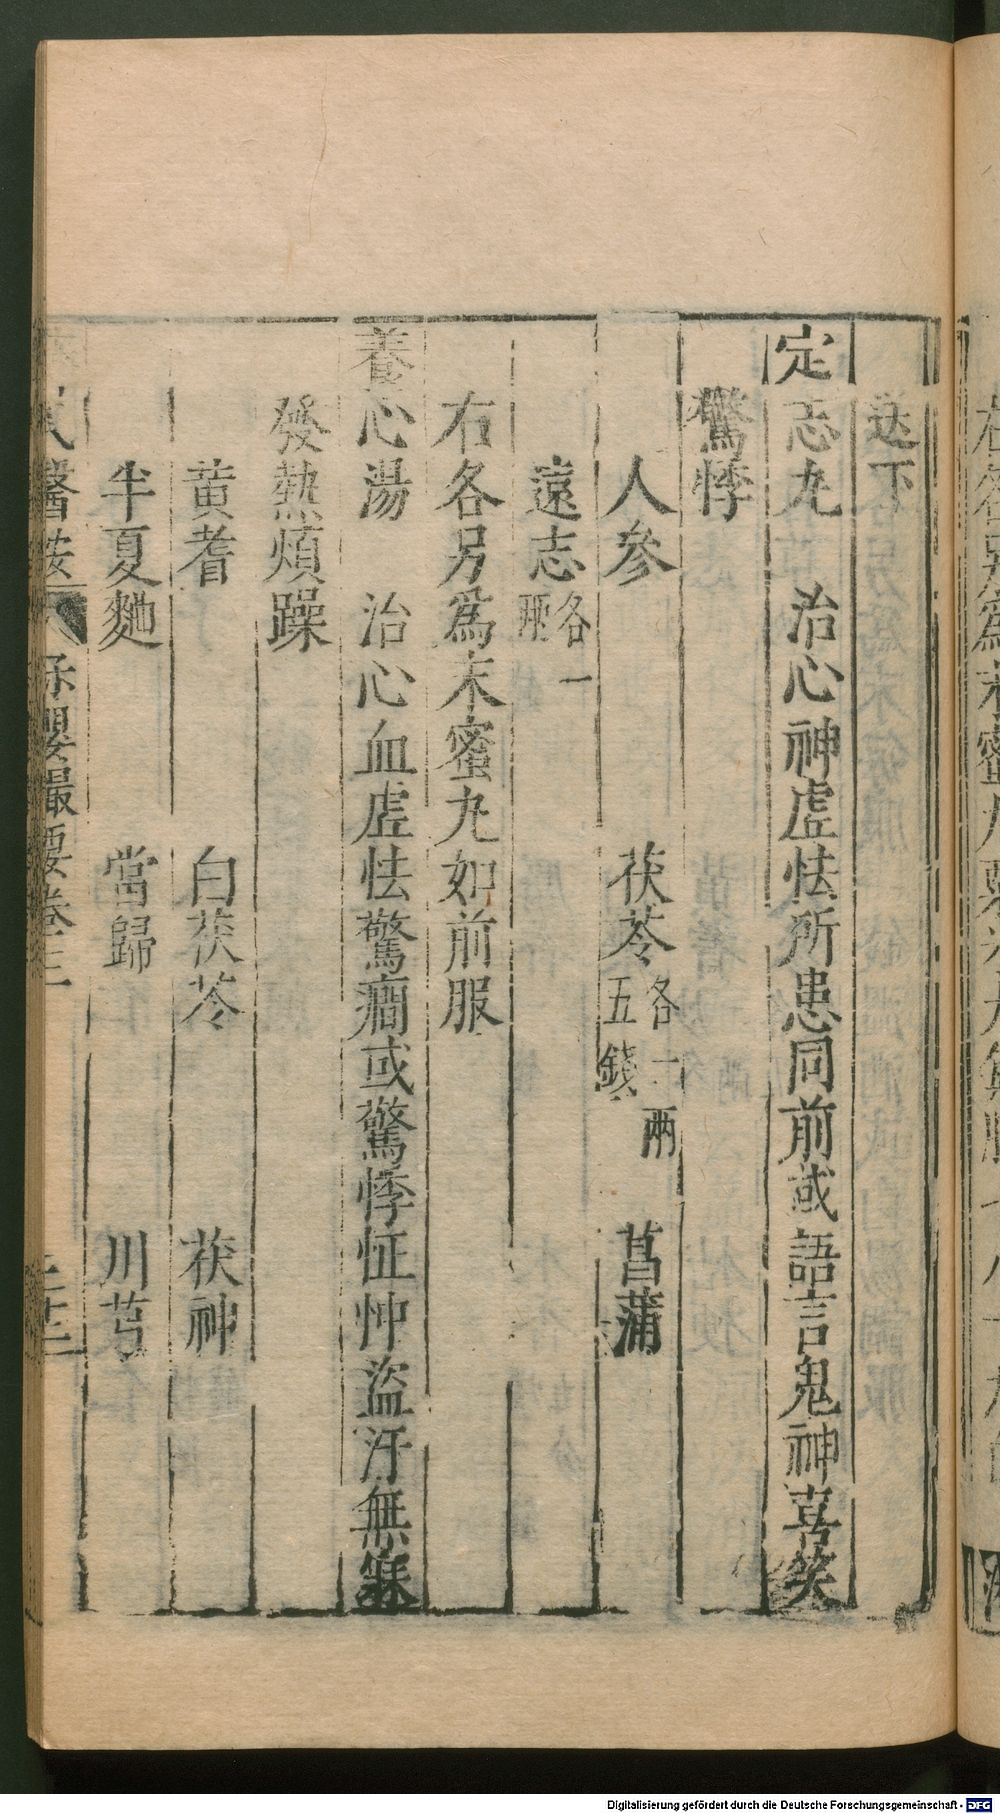 送下
定志丸　治心神虛怯所患同前或語言鬼神喜笑
驚悸
人參　茯苓各一兩五錢　菖蒲
遠志各一兩
右各另為末蜜丸如前服
養心湯　治心血虛怯驚癇或驚悸怔忡盜汗無寐
發熱煩躁
黃耆　白茯苓　茯神
半夏麯　當歸　川芎
氏醫案　保嬰撮要卷三　二十二
Digitalisierung gefördert durch die Deutsche Forschungsgemeinschaft - DFG